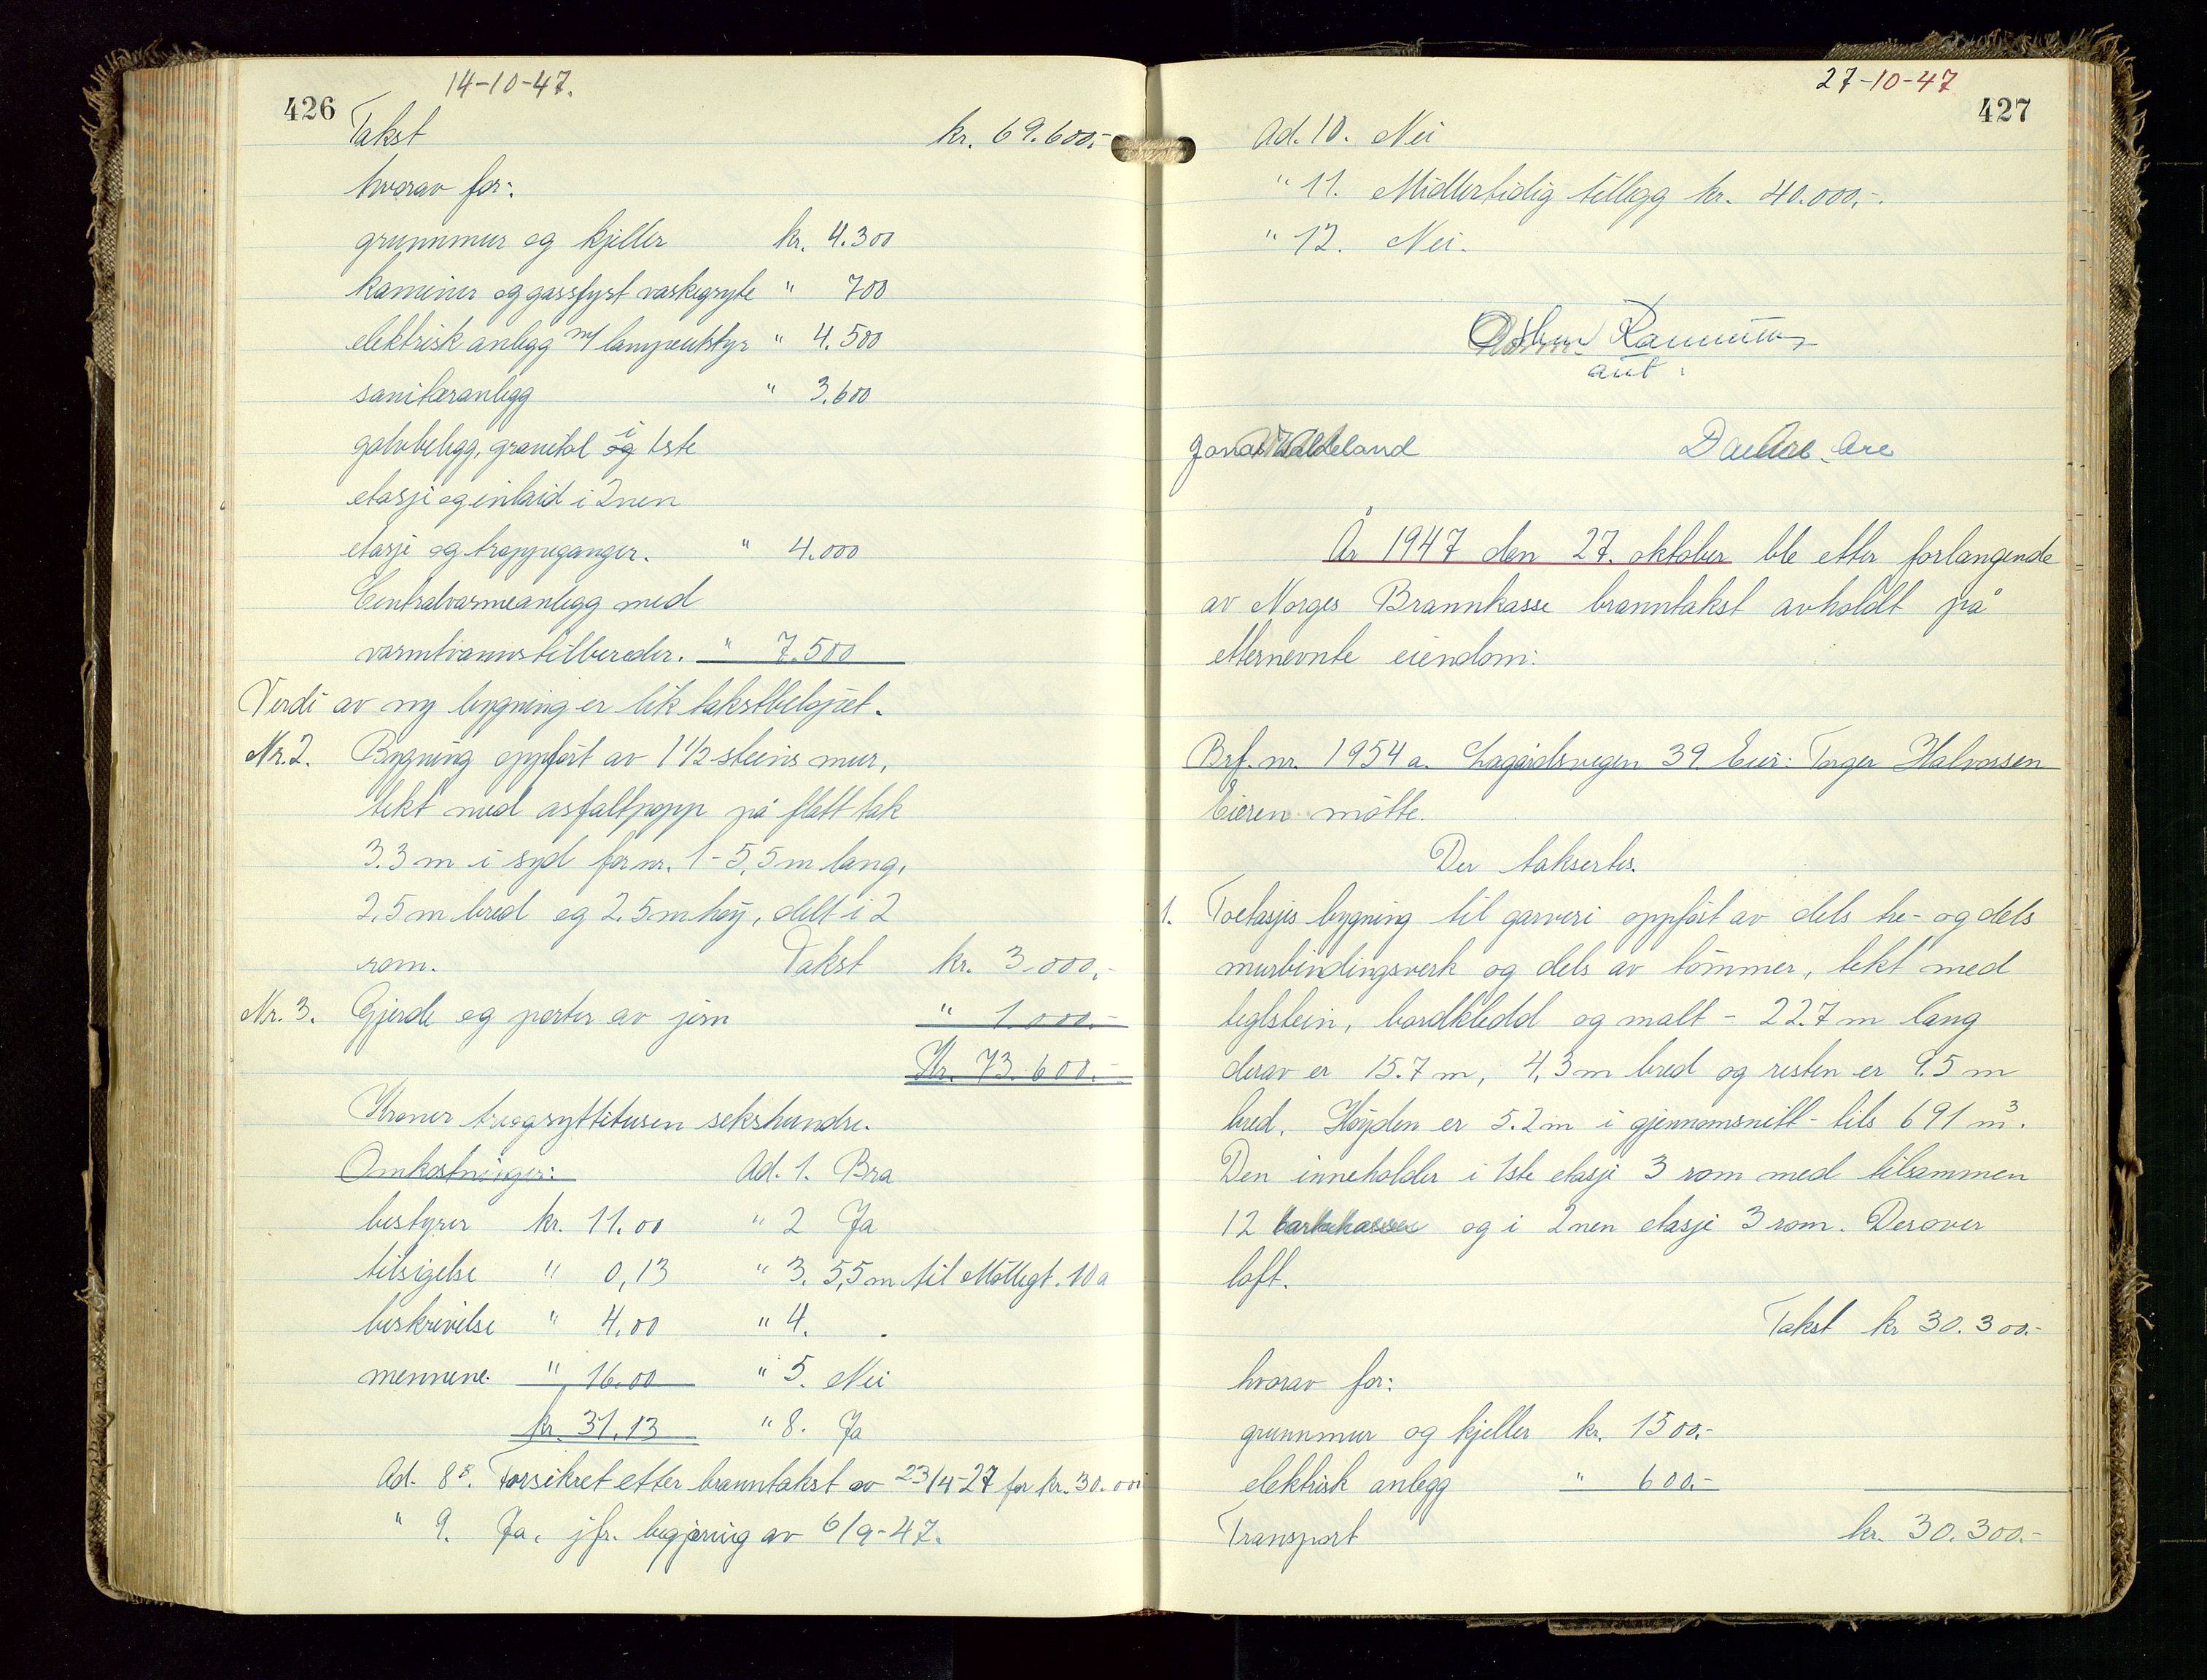 14-10-47.
426
Takst kr. 69.600.-
hvorav for:
grunnmur og kjeller kr. 4.300
kaminer og gassfyrt vaskegryte " 700
elektrisk anlegg m/ lampeutstyr " 4.500
sanitæranlegg " 3.600
golvbelegg, granitol og i 1ste
etasje og inlaid i 2nen
etasje og trappeganger. " 4.000
Centralvarmeanlegg med
varmtvannstilbereder. " 7.500
Verdi av ny bygning er lik takstbeløpet.
Nr. 2. Bygning oppført av 1 1/2 steins mur,
tekt med asfaltpapp på flatt tak
3.3 m i syd for nr. 1 - 5,5 m lang,
2,5 m bred og 2.5 m høy, delt i 2
rom. Takst kr. 3.000.-
Nr. 3. Gjerde og porter av jern " 1.000.-
Kr. 73.600.-
Kroner treogsyttitusen sekshundre.
Omkostninger: Ad. 1. Bra
bestyrer kr. 11.00 " 2 Ja
tilsigelse " 0,13 " 3. 5,5 m til Møllegt. 10 a
beskrivelse " 4,00 " 4.
mennene. " 16.00 " 5. Nei
kr. 31.13 " 8. Ja
Ad. 8B. Forsikret etter branntakst av 23/4-27 for kr. 30.000
" 9. Ja, jfr. begjæring av 6/9-47.
27-10-47
427
Ad. 10. Nei
" 11. Midlertidig tillegg kr. 40.000,-.
" 12. Nei.
aut.
År 1947 den 27. oktober ble etter forlangende
av Norges Brannkasse branntakst avholdt på
etternevnte eiendom:
Brf. nr. 1954 a. Lagårdsvegen 39. Eier: Torger Halvorsen
Eieren møtte.
Der taksertes.
1. Toetasjes bygning til garveri oppført av dels tre- og dels
murbindingsverk og dels av tømmer, tekt med
teglstein, bordkledd og malt - 22.7 m lang
derav er 15.7 m, 4,3 m bred og resten er 9.5 m
bred. Høyden er 5.2 m i gjennomsnitt - tils 691 m3.
Den inneholder i 1ste etasje 3 rom med tilsammen
12 barkekasser og i 2nen etasje 3 rom. Derover
loft.
Takst kr 30.300.-
hvorav for:
grunnmur og kjeller kr. 1500.-
elektrisk anlegg " 600.-
Transport kr. 30.300.-